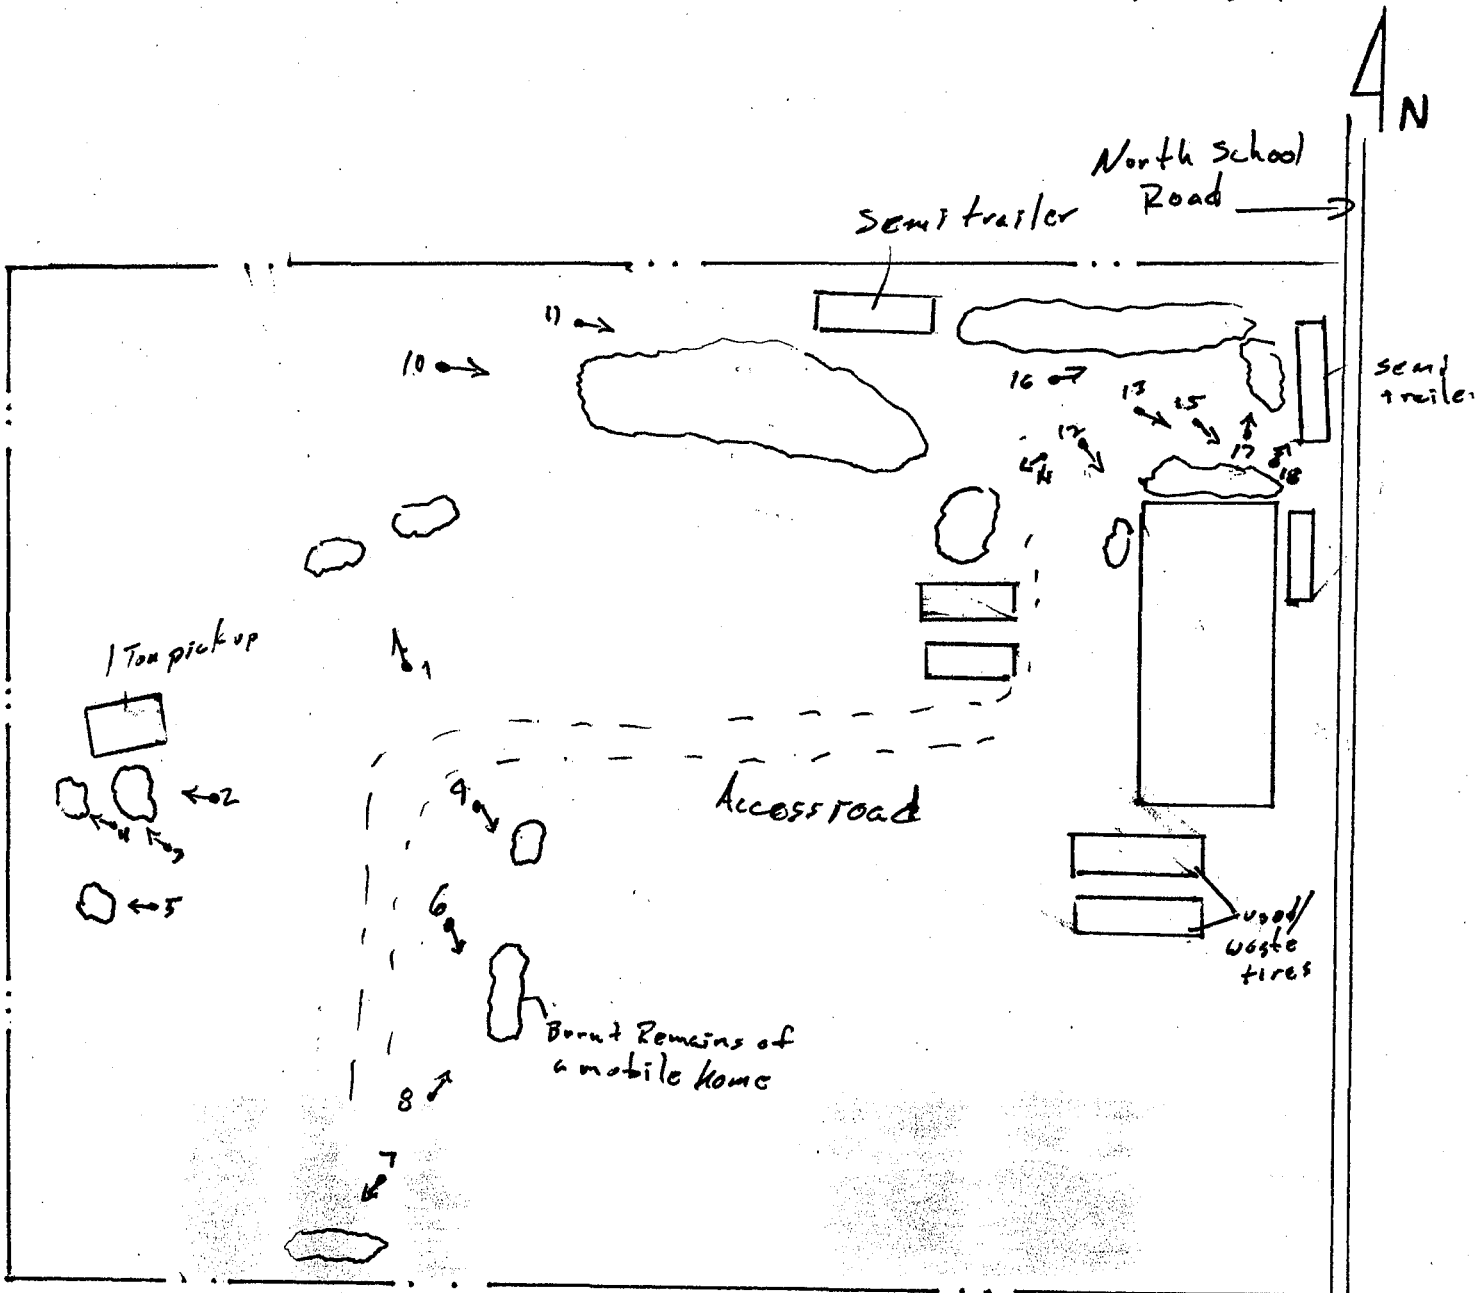 N
North School
Road
Semi trailer
11
10
16
13
15
semi
trailer
12
17
14
18
1 Ton pickup
1
2
4
3
9
Access road
5
6
used/
waste
tires
Burnt Remains of
a mobile home
8
7